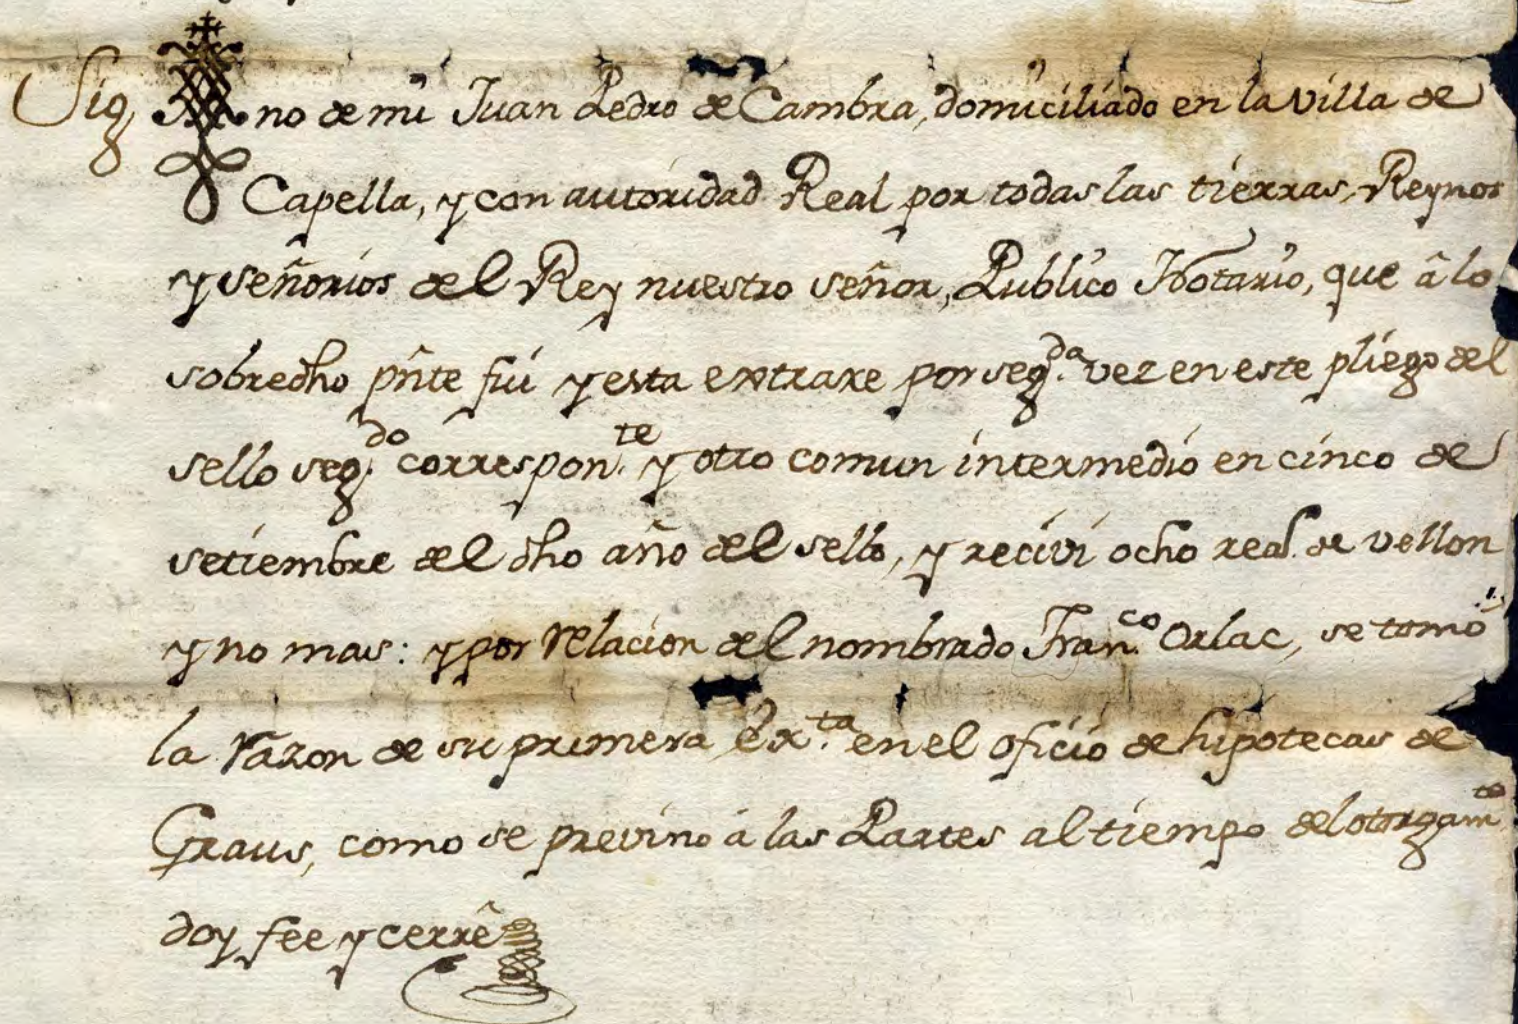 Sig no de mi Juan Pedro de Cambra, domiciliado en la villa de
Capella, y con autoridad Real por todas las tierras, Reynos
y señorios del Rey nuestro señor, Publico Notario, que â lo
sobredho pñte fui y esta extraxe por seg.da vez en este pliego del
sello seg.do correspon.te y otro comun intermedio en cinco de
setiembre del dho año del sello, y recivi ocho real.s de vellon
y no mas: y por relacion del nombrado Fran.co Orlac, se tomó
la razon de su primera Ex.ta en el oficio de hipotecas de
Graus, como se previno á las Partes al tiempo del otorgam.to
doy fee y cerrê